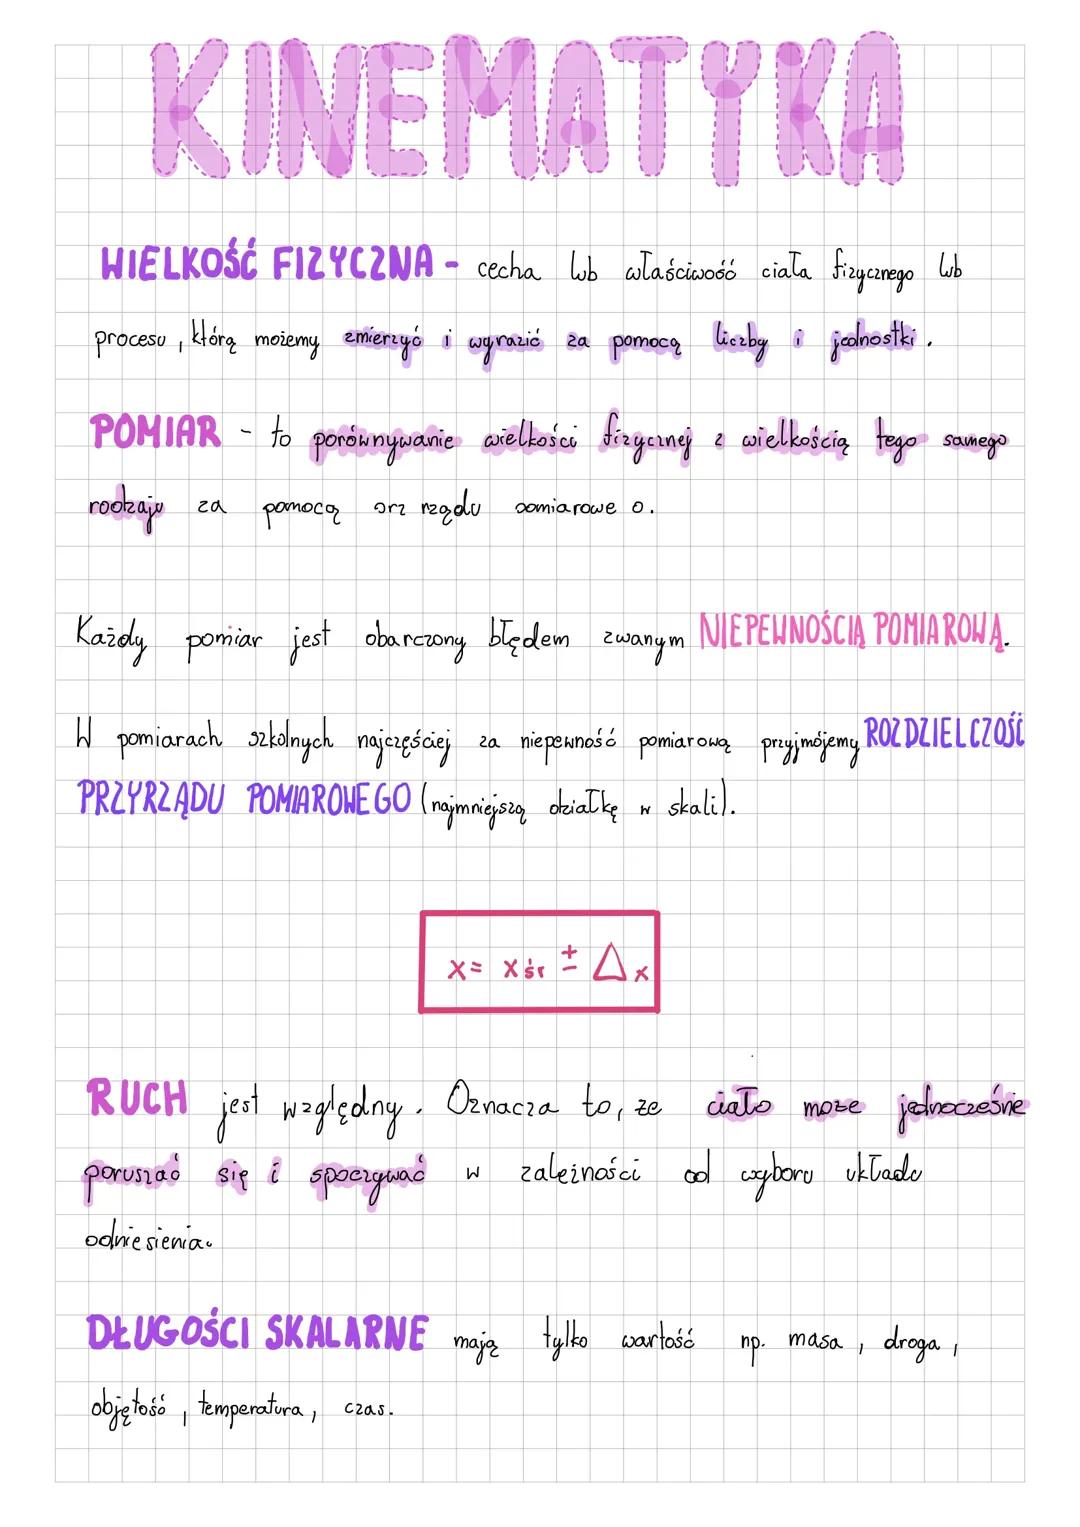 KINEMATYKA
WIELKOŚĆ FIZYCZNA - cecha lub właściwość ciała fizycznego lub
procesu, którą możemy zmierzyć i wyrazić za pomocą liczby i jednostki.
POMIAR - to porównywanie wielkości fizycznej z wielkością tego samego
rodzaju za pomocą
Każdy pomiar jest obarczony błędem zwanym NIEPEWNOŚCIĄ POMIAROWĄ.
W pomiarach szkolnych najczęściej za niepewność pomiarową przyjmójemy ROZDZIELCZOŚĆ
PRZYRZĄDU POMIAROWEGO (najmniejszą działkę w skali).
x = xśr ± Δx
RUCH jest względny. Oznacza to, że ciało może jednocześnie
poruszać się i spoczywać w zależności od wyboru układu
odniesienia.
DŁUGOŚCI SKALARNE mają tylko wartość np. masa, droga,
objętość, temperatura, czas.